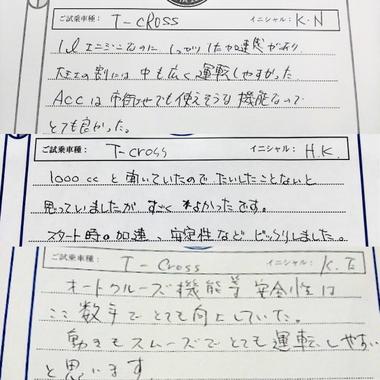 ご試乗車種： T-CROSS イニシャル： K.N
1ℓエンジンなのに しっかりした加速感があり
大きさの割には中も広く運転しやすかった
Accは市街地でも使えそうな機能なので
とても良かった。
ご試乗車種： T-cross イニシャル： H.K.
1000ccと聞いていたのでたいしたことないと
思っていましたが すごくよかったです。
スタート時の加速、安定性など ビックリしました。
ご試乗車種： T-Cross イニシャル： K.E
オートクルーズ機能等 安全性は
ここ数年でとても向上していた。
動きもスムーズでとても運転しやすい
と思います